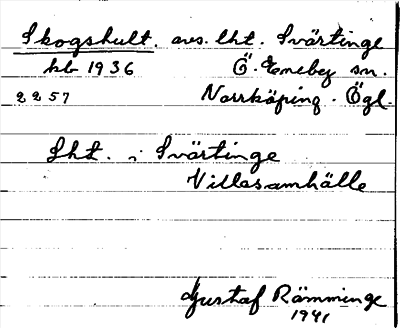 Skogshult. avs. lht. Svärtinge
kb 1936 Ö. Eneby sn.
2257 Norrköping. Ögl.
Lht. i Svärtinge
Villasamhälle
Gustaf Rämminge
1941